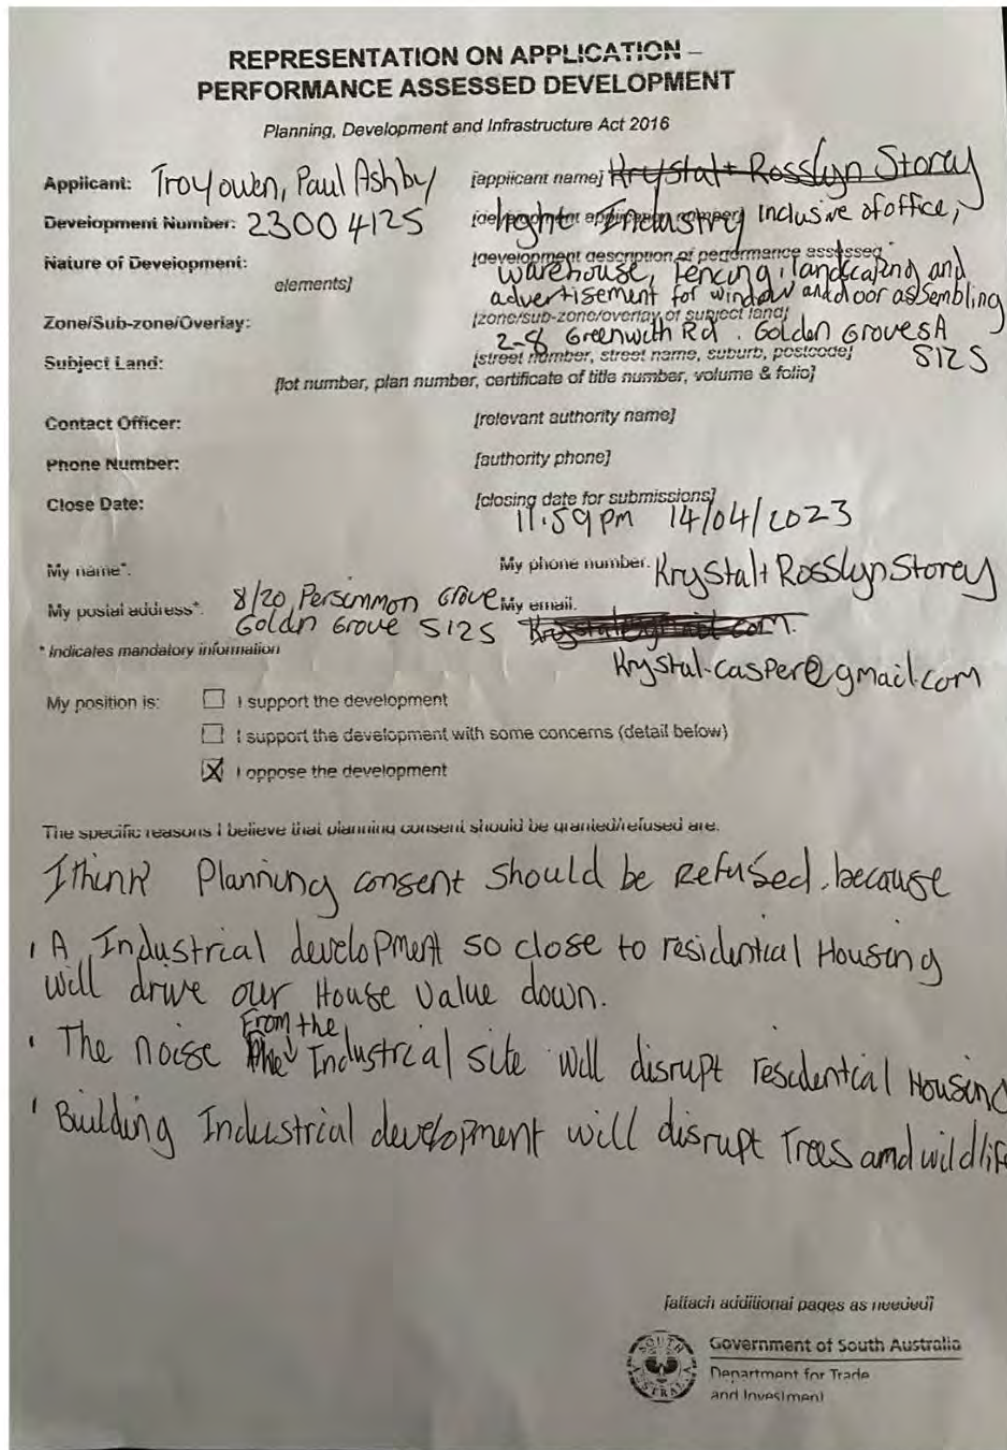 REPRESENTATION ON APPLICATION –
PERFORMANCE ASSESSED DEVELOPMENT
Planning, Development and Infrastructure Act 2016
Applicant: Troy owen, Paul Ashby [applicant name] Krystal + Rosslyn Storey
Development Number: 23004125 [development application number] light Industry inclusive of office,
Nature of Development: [development description of performance assessed
elements] warehouse, Fencing, landscaping and
advertisement for window and door assembling
Zone/Sub-zone/Overlay: [zone/sub-zone/overlay of subject land]
2-8 Greenwith Rd. Golden Grove SA
Subject Land: [street number, street name, suburb, postcode] 5125
[lot number, plan number, certificate of title number, volume & folio]
Contact Officer: [relevant authority name]
Phone Number: [authority phone]
Close Date: [closing date for submissions]
11.59pm 14/04/2023
My name*: My phone number: Krystal + Rosslyn Storey
My postal address*: 8/20 Persimmon Grove My email:
Goldn Grove 5125 Krystale@gmail.com.
* Indicates mandatory information
Krystal-casper@gmail.com
My position is: I support the development
I support the development with some concerns (detail below)
X I oppose the development
The specific reasons I believe that planning consent should be granted/refused are:
I think Planning consent should be Refused, because
' A Industrial development so close to residential Housing
will drive our House Value down.
From the
' The noise The Industrial site will disrupt residential Housing
' Building Industrial development will disrupt Trees amd wildlife
[attach additional pages as needed]
SOUTH AUSTRALIA
Government of South Australia
Department for Trade
and Investment